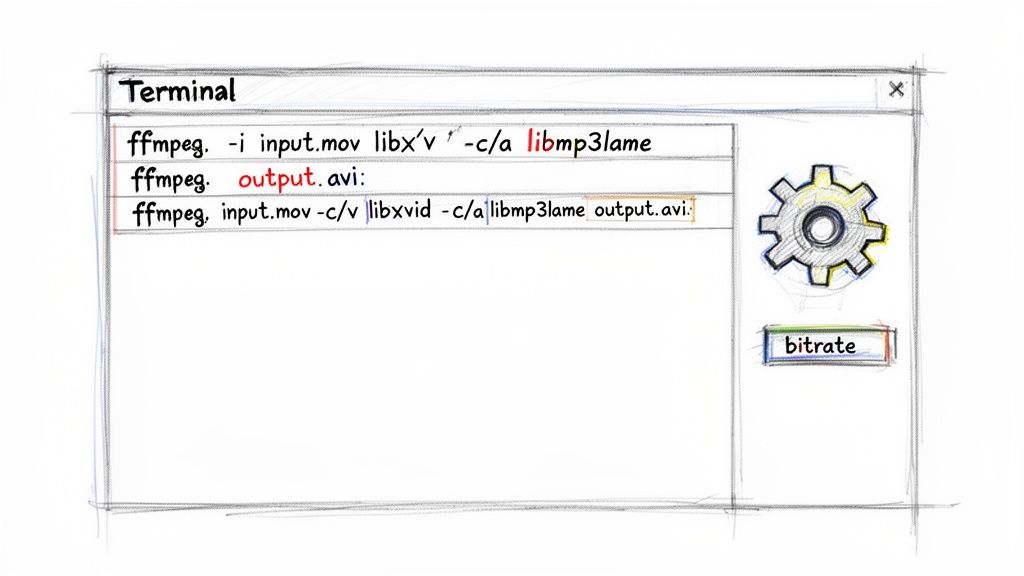 Terminal
ffmpeg. -i input.mov libx'v -c/a libmp3lame
ffmpeg. output.avi:
ffmpeg. input.mov -c/v libxvid -c/a libmp3lame output.avi:
bitrate